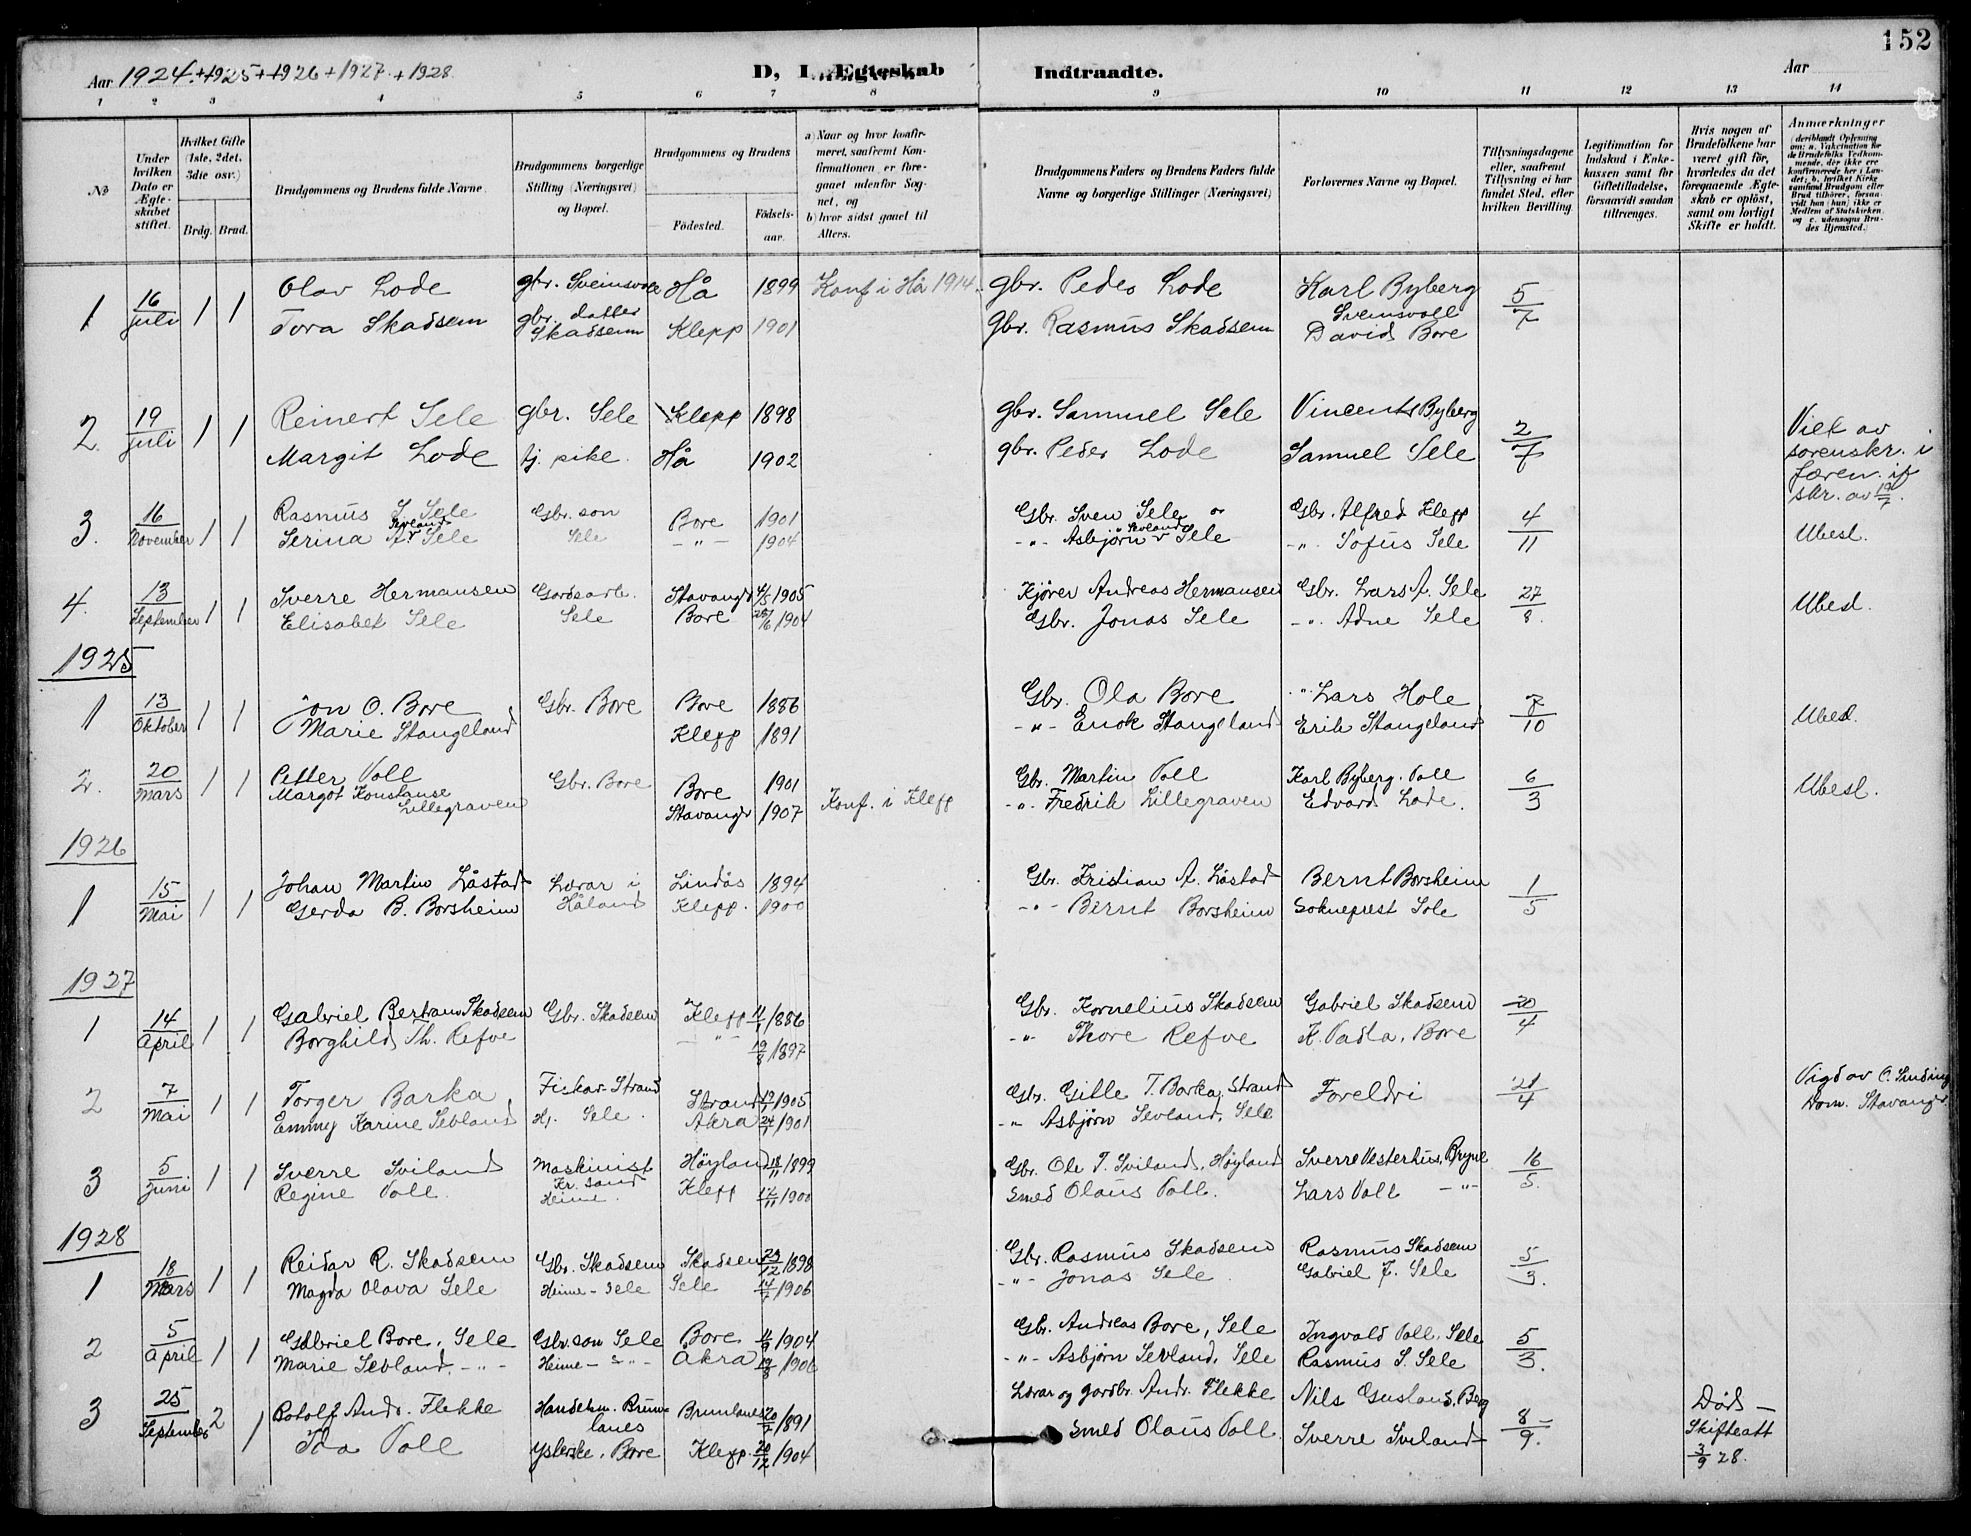 152
Aar 1924.+1925+1926+1927.+1928.
D, I. Ægteskab Indtraadte.
Aar
1 2 3 4 5 6 7 8 9 10 11 12 13 14
No
Under hvilken Dato er Ægteskabet stiftet.
Hvilket Gifte (1ste, 2det, 3die osv.)
Brdg. Brud.
Brudgommens og Brudens fulde Navne
Brudgommens borgerlige Stilling (Næringsvei) og Bopæl.
Brudgommens og Brudens
Födested.
Födselsaar.
a) Naar og hvor konfirmeret, saafremt Konfirmationen er foregaaet udenfor Sognet, og
b) hvor sidst gaaet til Alters.
Brudgommens Faders og Brudens Faders fulde Navne og borgerlige Stillinger (Næringsvei)
Forlovernes Navne og Bopæl.
Tillysningsdagene eller, saafremt Tillysning ei har fundet Sted, efter hvilken Bevilling.
Legitimation for Indskud i Enkekassen samt for Giftetilladelse, forsaavidt saadan tiltrænges.
Hvis nogen af Brudefolkene har været gift før, hvorledes da det foregaaende Ægteskab er opløst, samt om lovligt Skifte er holdt.
Anmærkninger
(deriblandt Oplysning om: a. Vakcination for de Brudefolks Vedkommende, der ikke ere konfirmerede her i Landet; b. hvilket Kirkesamfund Brudgom eller Brud tilhører, forsaavidt han (hun) ikke er Medlem af Statskirken, og c. udensogns Brudes Hjemsted.)
1 16/juli 1 1 Olav Lode gbr. Sveinsvoll Hå 1899 Konf i Hå 1914. gbr. Peder Lode Karl Byberg Sveinsvoll 5/7
Tora Skadsem gbr. datter Skadsem Klepp 1901 gbr. Rasmus Skadsem David Bore
2 19/juli 1 1 Reinert Sele gbr. Sele Klepp 1898 gbr. Samuel Sele Vincents Byberg 2/7 Viet av sorenskr. i Jæren if skr. av 19/7.
Margit Lode tj. pike. Hå 1902 gbr. Peder Lode Samuel Sele
3. 16/November 1 1 Rasmus S. Sele Gbr. son Bore 1901 Gbr. Sven Sele Gbr. Alfred Klepp 4/11 Ubesl.
Serina A. Sevland Sele Sele -"- 1904 -"- Asbjørn Sevland Sele -"- Sofus Sele
4. 13/September 1 1 Sverre Hermansen Gardsarb. Stavangr 4/5 1905 Kjører Andreas Hermansen Gbr. Lars A. Sele 27/8. Ubesl.
Elisabet Sele Sele Bore 25/6 1904 Gbr. Jonas Sele -"- Adne Sele
1925
1 13/Oktober 1 1 Jon O. Bore Gbr. Bore Bore 1886 Gbr. Ola Bore -"- Lars Hole 7/10 Ubesl.
Marie Stangeland Klepp 1891 -"- Enok Stangeland Erik Stangeland
2. 20/Mars 1 1 Petter Voll Gbr. Bore Bore 1901 Gbr. Martin Voll Karl Byberg. Voll 6/3 Ubesl.
Margot Konstanse Lillegraven Stavangr 1907 Konf. i Klepp -"- Fredrik Lillegraven Edvard Lode.
1926
1 15/Mai 1 1 Johan Martin Låstad Lærar i Håland Lindås 1894 Gbr. Kristian A. Låstad Bernt Borsheim 1/5
Gerda B. Borsheim Klepp. 1900 -"- Bernt Borsheim Sokneprest Sole
1927
1 14/April 1 1 Gabriel Bertram Skadsem Gbr. Skadsem Klepp 11/1 1886 Gbr. Kornelius Skadsem Gabriel Skadsem 20/4
Borghild Th. Refve -"- 19/8 1897 -"- Thore Refve K. Vadla, Bore
2 7/Mai 1 1 Torger Barka Fiskar Strand Strand 1905 Gbr. Gitle T. Barka, Strand Foreldri 21/4 Vigd av O. Sinding Dom. Stavangr.
Emmy Karine Sevland Hj. Sele. Åkra 24/1 1901 -"- Asbjørn Sevland, Sele
3 5/Juni 1 1 Sverre Sviland Maskinist Kr. sand Høyland 28/11 1899 Gbr. Ole T. Sviland, Høyland Sverre Vesterhus, Bryne 16/5.
Regine Voll. Heime. Klepp 17/11 1900 Smed Olaus Voll. Lars Voll -"-
1928
1 18/Mars 1 1 Reidar R. Skadsem Gbr. Skadsem Skadsem 23/12 1898 Gbr. Rasmus Skadsem Rasmus Skadsem 5/3.
Magda Olava Sele Heime - Sele Sele 14/7 1906 -"- Jonas Sele. Gabriel J. Sele
2 5/April 1 1 Gabriel Bore, Sele Gbr.son Sele Bore 4/9 1904 Gbr. Andreas Bore, Sele Ingvald Voll, Sele 5/3.
Marie Sevland -"- Heime -"- Åkra 19/8 1906 -"- Asbjørn Sevland, Sele Rasmus S. Sele
3 25/September 2 1 Botolf Andr. Flekke Handelsm. Brunlanes Brunlanes 20/7 1891 Lærar og gardbr. Andr. Flekke Nils Gusland, Berg 8/9. Død - Skifteatt 3/9 28.
Ida Voll Ysterske, Bore Klepp. 20/12 1904 Smed Olaus Voll Sverre Sviland